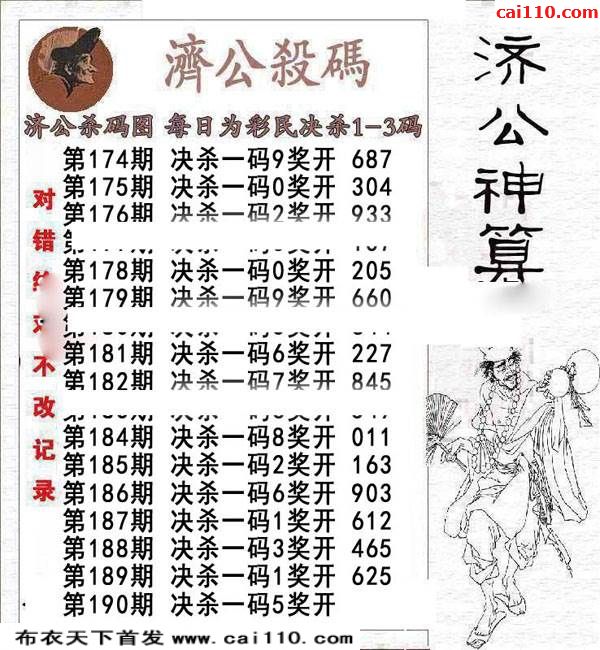 cai110.com
濟公殺碼
济公神算
济公杀码图 每日为彩民决杀1-3码
对错 不改记录
第174期 决杀一码9奖开 687
第175期 决杀一码0奖开 304
第176期 决杀一码2奖开 933
第178期 决杀一码0奖开 205
第179期 决杀一码9奖开 660
第181期 决杀一码6奖开 227
第182期 决杀一码7奖开 845
第184期 决杀一码8奖开 011
第185期 决杀一码2奖开 163
第186期 决杀一码6奖开 903
第187期 决杀一码1奖开 612
第188期 决杀一码3奖开 465
第189期 决杀一码1奖开 625
第190期 决杀一码5奖开
布衣天下首发 www.cai110.com